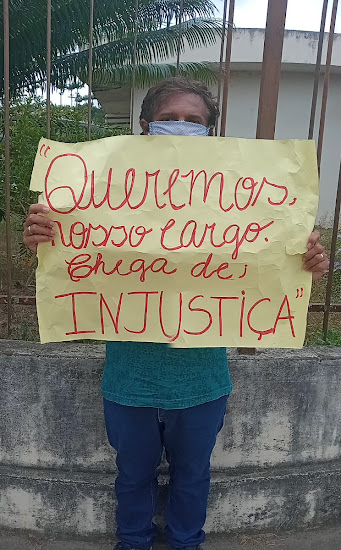 "Queremos,
nosso cargo.
Chega de;
INJUSTIÇA"